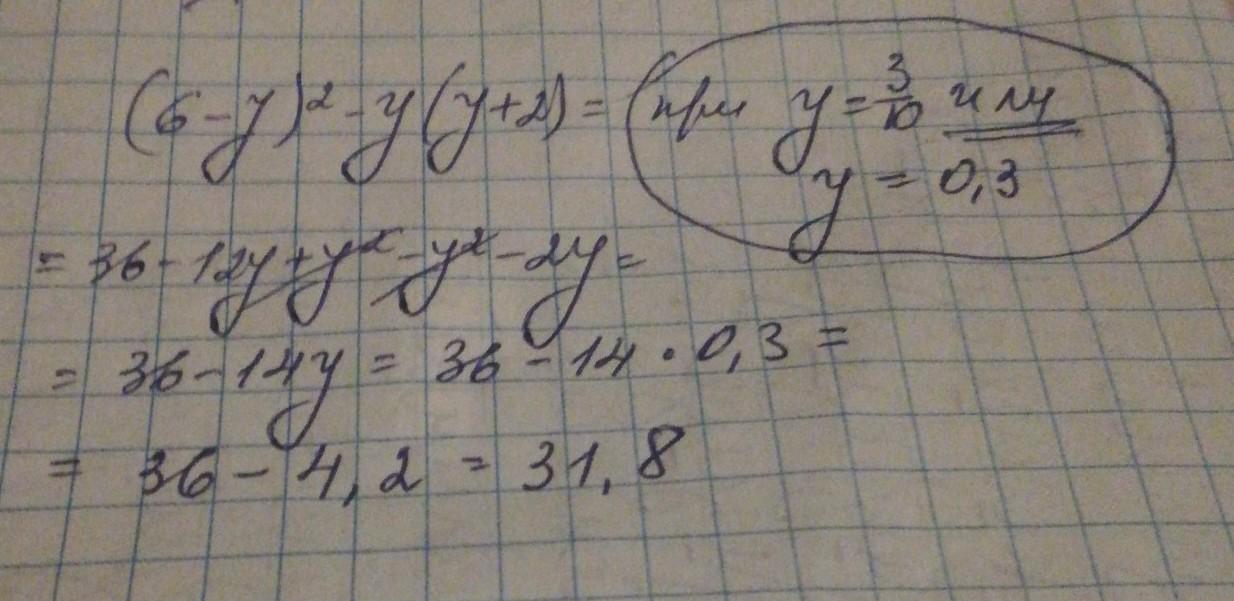 (6-y)²-y(y+2)= (при y=3/10 или
y = 0,3
= 36-12y+y²-y²-2y=
= 36-14y = 36-14·0,3=
= 36-4,2 = 31,8